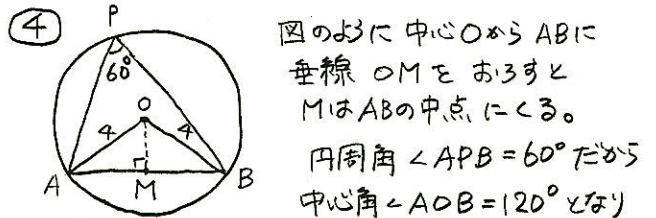 ④
P
60°
O
4
4
A
M
B
図のように中心OからABに
垂線 OMを おろすと
MはABの中点にくる。
円周角∠APB=60°だから
中心角∠AOB=120°となり